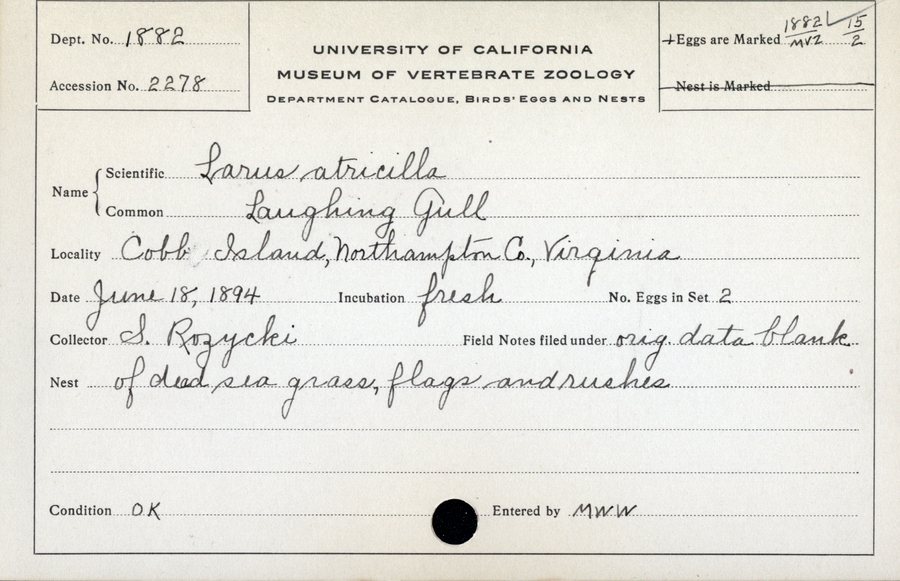 Dept. No. 1882
Accession No. 2278
UNIVERSITY OF CALIFORNIA
MUSEUM OF VERTEBRATE ZOOLOGY
DEPARTMENT CATALOGUE, BIRDS' EGGS AND NESTS
Eggs are Marked 1882/MVZ 15/2
Nest is Marked
Name
Scientific Larus atricilla
Common Laughing Gull
Locality Cobb Island, Northampton Co., Virginia
Date June 18, 1894 Incubation fresh No. Eggs in Set 2
Collector S. Rozycki Field Notes filed under orig. data blank
Nest of dead sea grass, flags and rushes
Condition OK Entered by MWW